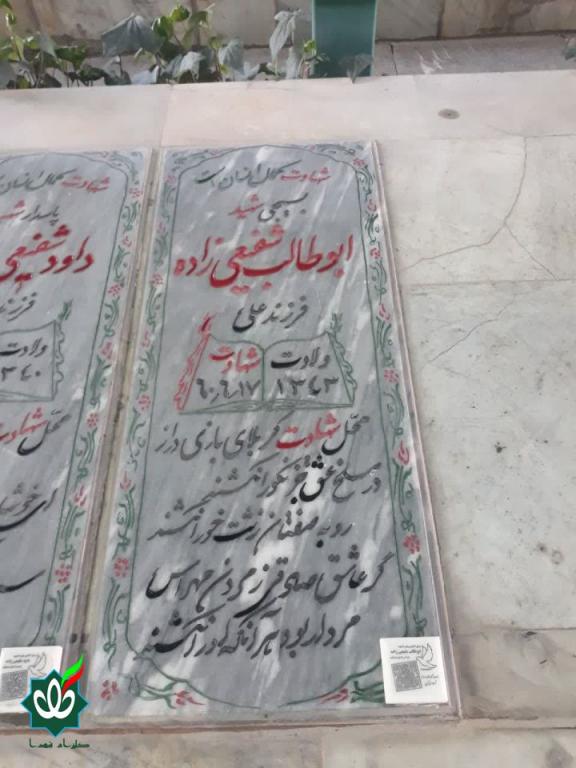 شهادت کمال انسان است
بسیجی شهید
ابوطالب شفیعی زاده
فرزند علی
ولادت
۱۳۴۳
شهادت
۶۰٫۶٫۱۷
محل شهادت کربلای بازی دراز
در مسلخ عشق جز نکو را نکشند
روبه صفتان زشت خو را نکشند
گر عاشق صادقی ز مردن مهراس
مردار بود هر آنکه او را نکشند
شهادت کمال انسان
پاسدار شه
داود شفیعی
فرزند
ولادت
۱۳۴۰
محل شهادت
ابوطالب شفیعی زاده
گلزار شهدا